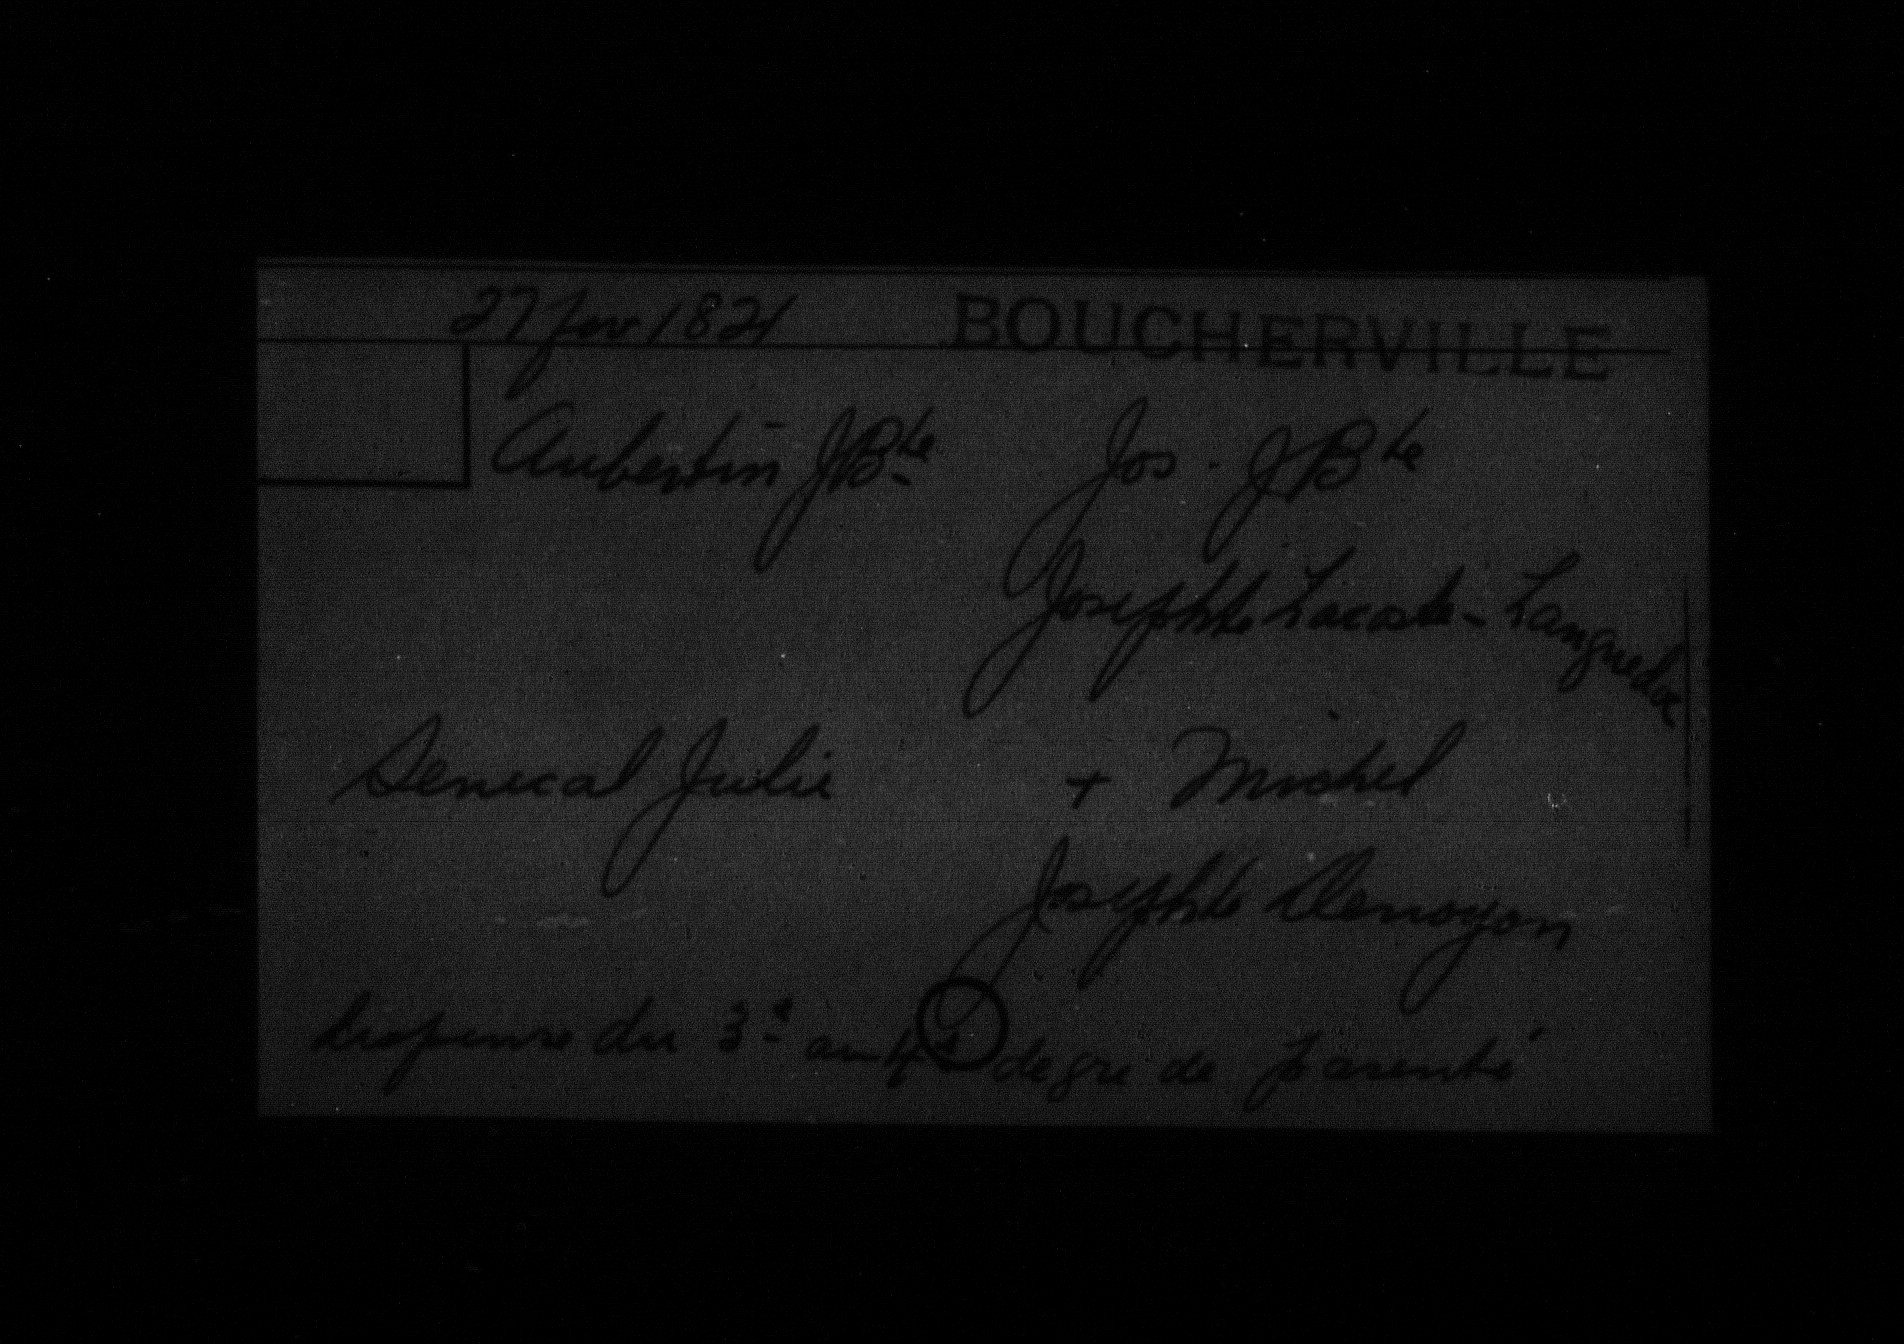 27 fev 1821 BOUCHERVILLE
Aubertin JBte Jos. JBte
Josephte Lacoste-Languedoc
Senecal Julie + Michel
Josephte Denoyon
dispense du 3e au 4e degre de parenté